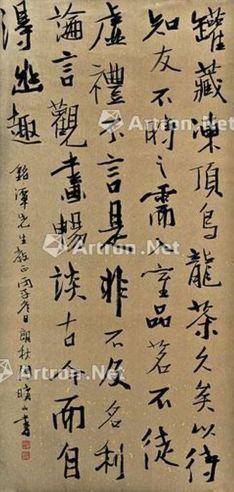 罐藏凍頂烏龍茶久矣以待
知友不時之需入室品茗不徒
虛禮不言是非不及名利
論言觀畫暢談古今而自
得幽趣
先生教正丙子冬日
Artron.Net
Artron.Net
Artron.Net
Artron.Net